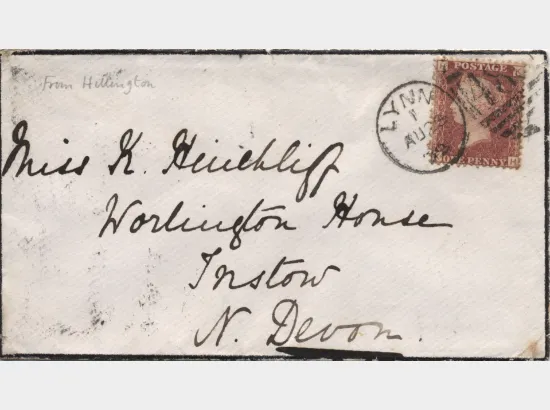 From Hillington
POSTAGE
LYNN
AU
ONE PENNY
Miss K. Hinchliff
Worlington House
Instow
N. Devon.